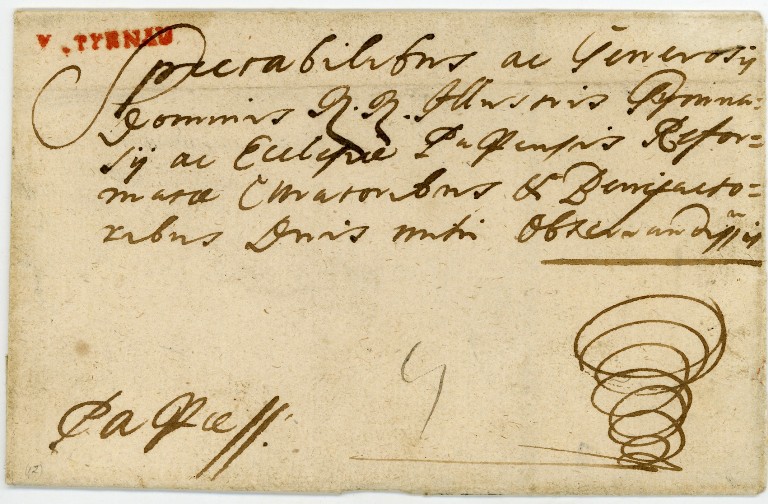 V. TYRNAU
Spectabilibus ac Generosis
Dominis N. N. Illustris Gymna=
sij ac Ecclesiæ Papensis Refor=
matæ Curatoribus & Benefacto=
ribus Dnis mihi Observandissis
Papæ
4
(12)